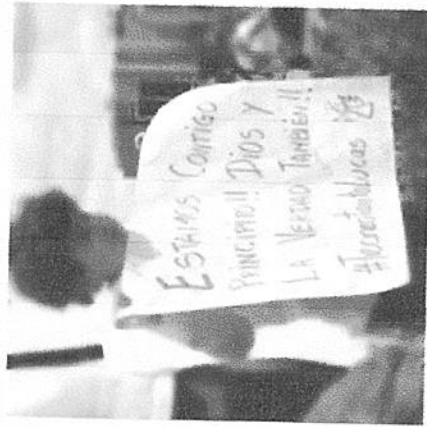 ESTAMOS CONTIGO
PRINCIPITO!! DIOS Y
LA VERDAD TAMBIÉN!!